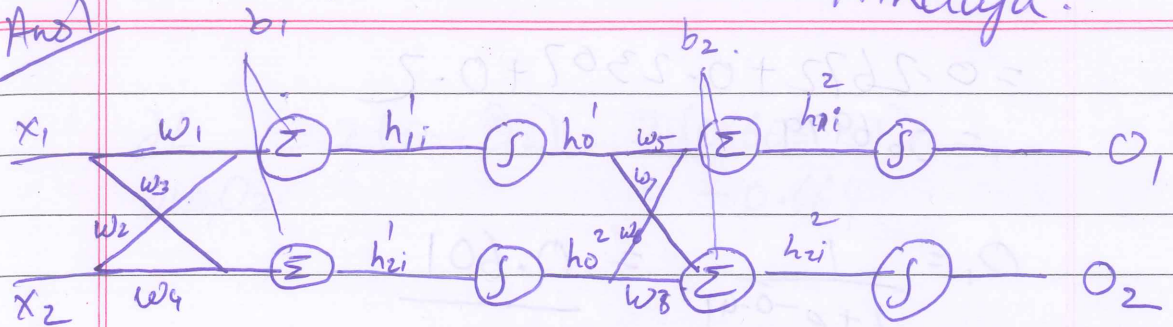 Ans 1
b1
b2.
x1 w1 Σ h¹1i ∫ h0¹ w5 Σ h²1i ∫ O1
w3 w7
w2 w6
x2 w4 Σ h¹2i ∫ h0² w8 Σ h²2i ∫ O2